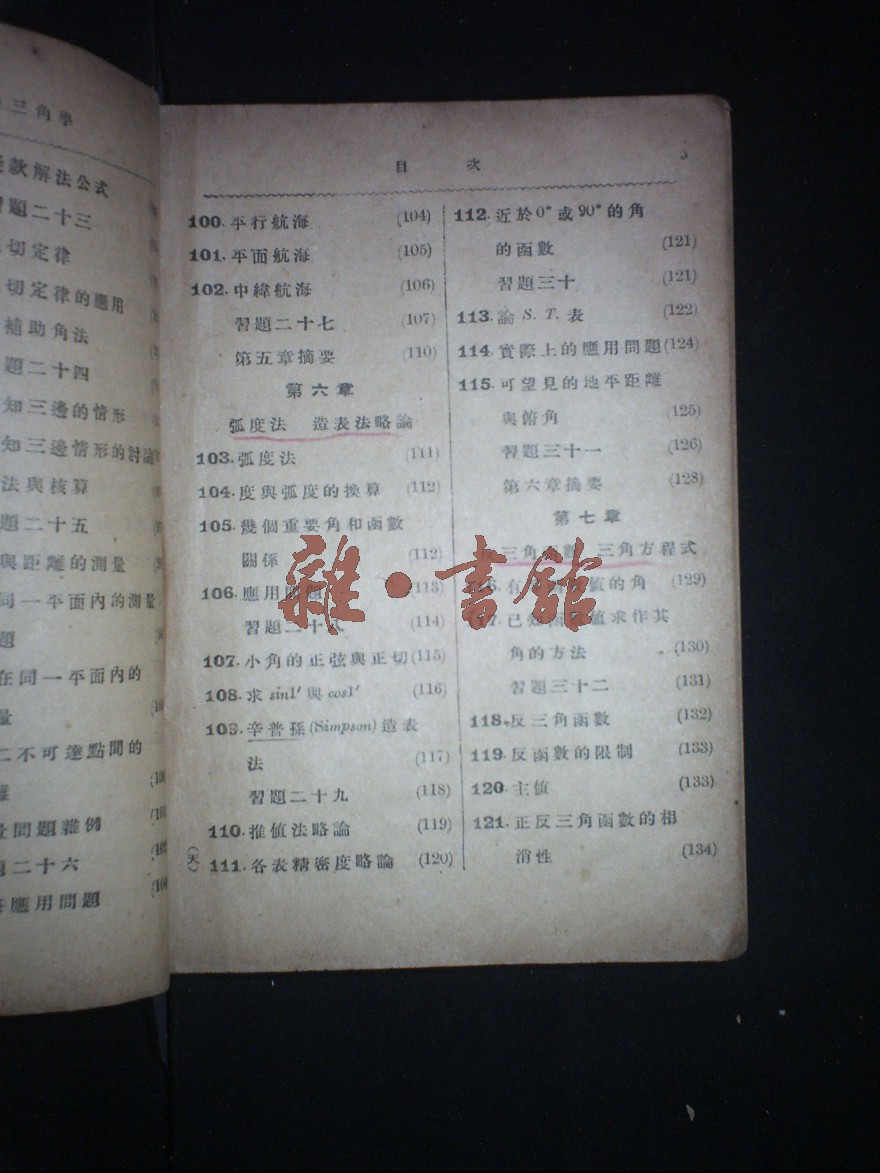 三角學
款解法公式
題二十三
切定律
切定律的應用
補助角法
題二十四
知三邊的情形
知三邊情形的討論
法與核算
題二十五
與距離的測量
同一平面內的測量
題
在同一平面內的
量
二不可達點間的
離
問題雜例
題二十六
應用問題
目 次
100. 平行航海 (104)
101. 平面航海 (105)
102. 中緯航海 (106)
習題二十七 (107)
第五章摘要 (110)
第六章
弧度法 造表法略論
103. 弧度法 (111)
104. 度與弧度的換算 (112)
105. 幾個重要角和函數
關係 (112)
106. 應用問題 (113)
習題二十八 (114)
107. 小角的正弦與正切 (115)
108. 求 sin1′ 與 cos1′ (116)
109. 辛普孫 (Simpson) 造表
法 (117)
習題二十九 (118)
110. 推值法略論 (119)
111. 各表精密度略論 (120)
112. 近於 0° 或 90° 的角
的函數 (121)
習題三十 (121)
113. 論 S. T. 表 (122)
114. 實際上的應用問題 (124)
115. 可望見的地平距離
與俯角 (125)
習題三十一 (126)
第六章摘要 (128)
第七章
三角函數 三角方程式
116. 有 值的角 (129)
117. 已知 值求作其
角的方法 (130)
習題三十二 (131)
118. 反三角函數 (132)
119. 反函數的限制 (133)
120. 主值 (133)
121. 正反三角函數的相
消性 (134)
雜·書館